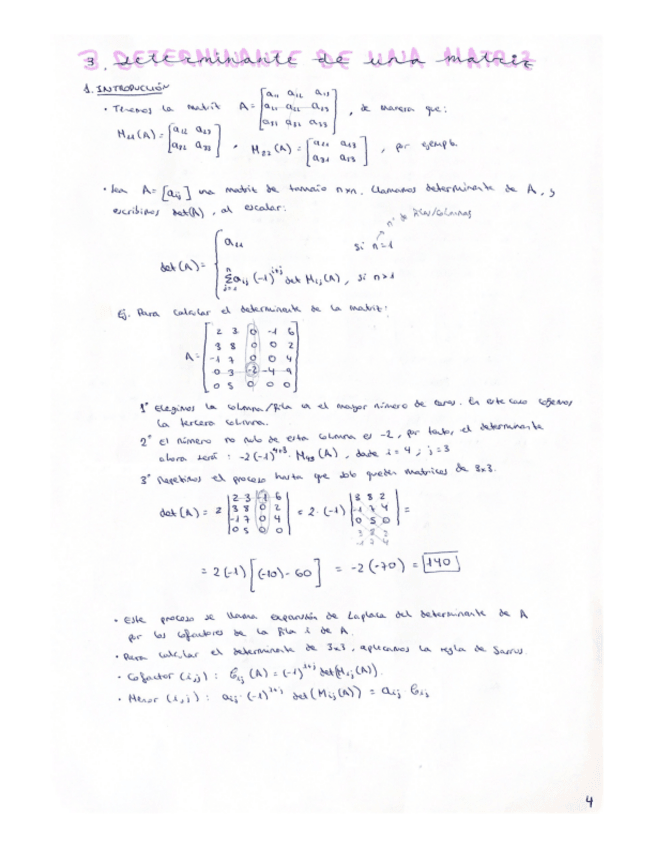 3. DETERMINANTE DE UNA MATRIZ
1. INTRODUCCIÓN
• Tenemos la matriz A = [a11 a12 a13; a21 a22 a23; a31 a32 a33], de manera que:
M11(A) = [a22 a23; a32 a33], M22(A) = [a11 a13; a31 a33], por ejemplo
• Sea A = [aij] una matriz de tamaño n×n. Llamamos determinante de A, y
escribimos det(A), al escalar:
nº de filas/columnas
det(A) = { a11 si n=1
∑ aij (-1)^i+j det Mij(A), si n>1
Ej. Para calcular el determinante de la matriz:
A = [2 3 0 -1 6
3 8 0 0 2
-1 7 0 0 4
0 3 -2 -4 9
0 5 0 0 0]
1º Elegimos la columna/fila con el mayor número de ceros. En este caso cogemos
la tercera columna.
2º El número no nulo de esta columna es -2, por tanto, el determinante
ahora será: -2(-1)^4+3 · M43(A), donde i=4; j=3
3º Repetimos el proceso hasta que solo queden matrices de 3x3.
det(A) = 2 |2 3 -1 6; 3 8 0 2; -1 7 0 4; 0 5 0 0| = 2·(-1) |3 8 2; -1 7 4; 0 5 0| =
= 2(-1) [(-10) - 60] = -2(-70) = 140
• Este proceso se llama expansión de Laplace del determinante de A
por los cofactores de la fila i de A.
• Para calcular el determinante de 3x3, aplicamos la regla de Sarrus.
• Cofactor (i,j): Cij(A) = (-1)^i+j det(Mij(A)).
• Menor (i,j): aij·(-1)^i+j det(Mij(A)) = aij Cij
4